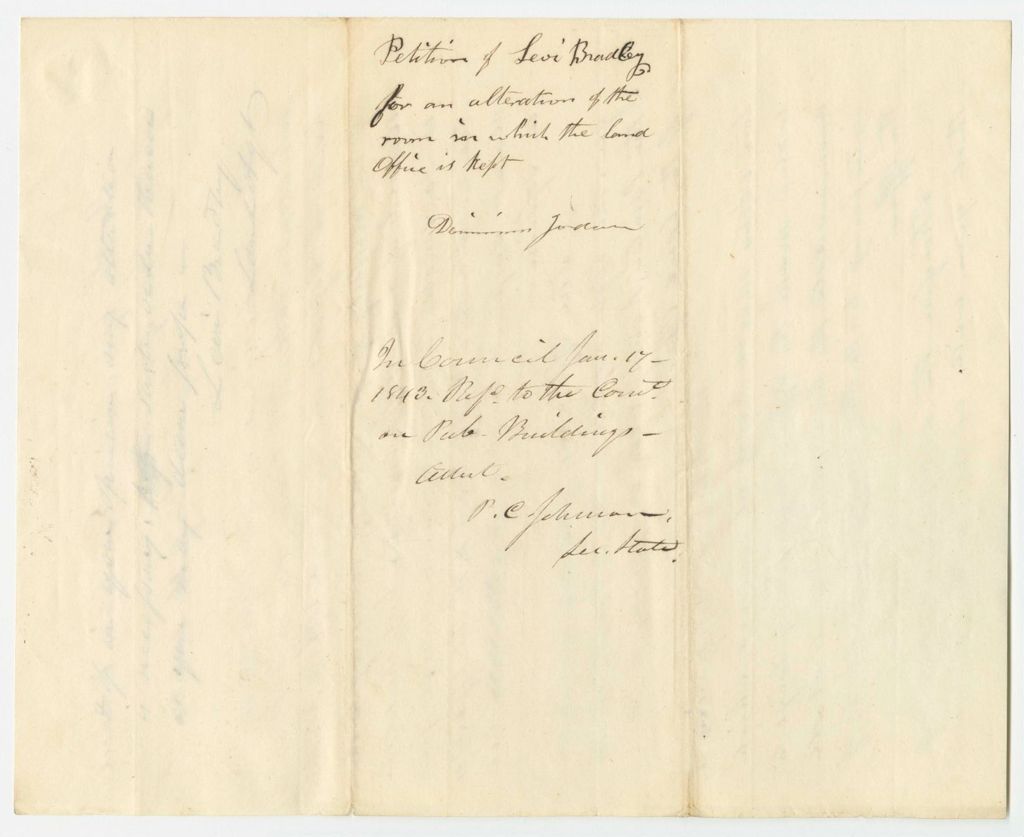 Petition of Levi Bradley
for an alteration of the
room in which the land
Office is Kept
In Council Jan. 17-
1843. Refd. to the Comte.
on Pub. Buildings -
Attest.
P. C. Johnson,
Sec. State.